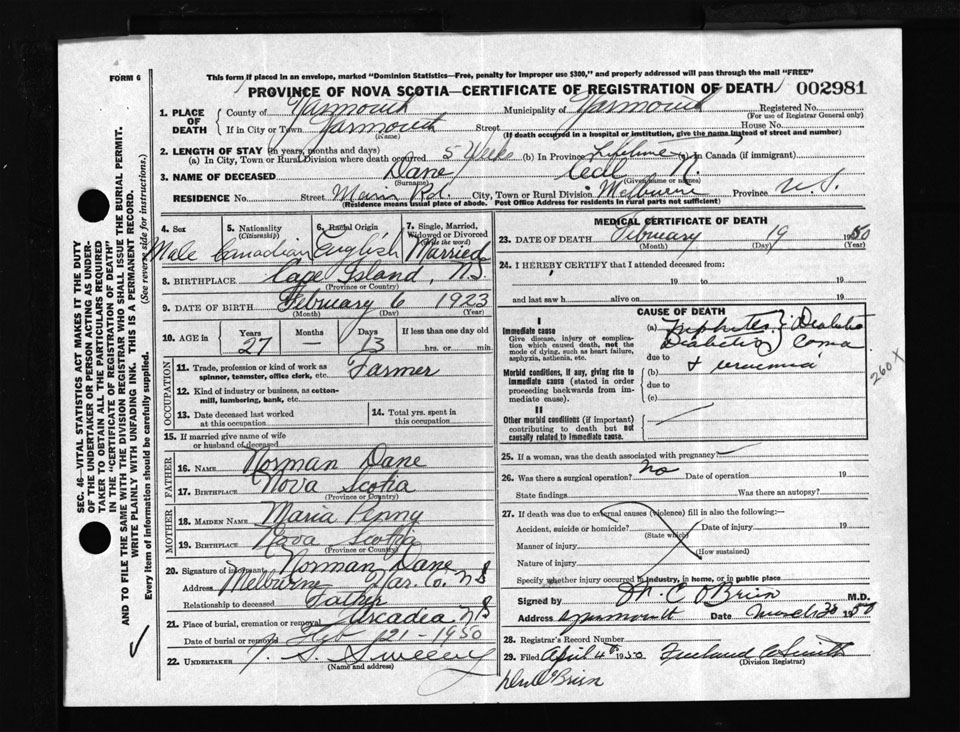 FORM 6
This form if placed in an envelope, marked "Dominion Statistics—Free, penalty for improper use $300," and properly addressed will pass through the mail "FREE"
PROVINCE OF NOVA SCOTIA—CERTIFICATE OF REGISTRATION OF DEATH 002981
1. PLACE OF DEATH County of Yarmouth Municipality of Yarmouth Registered No.
(For use of Registrar General only)
If in City or Town Yarmouth Street House No.
(Name) (If death occurred in a hospital or institution, give the name instead of street and number)
2. LENGTH OF STAY (in years, months and days)
(a) In City, Town or Rural Division where death occurred 5 Weeks (b) In Province Lifetime (c) In Canada (if immigrant)
3. NAME OF DECEASED Dane Cecil N.
(Surname) (Given name or names)
RESIDENCE No. Street Main Rd. City, Town or Rural Division Melbourne Province N.S.
(Residence means usual place of abode. Post Office Address for residents in rural parts not sufficient)
4. Sex Male
5. Nationality (Citizenship) Canadian
6. Racial Origin English
7. Single, Married, Widowed or Divorced (Write the word) Married
8. BIRTHPLACE Cape Island, N.S.
(Province or Country)
9. DATE OF BIRTH February 6 1923
(Month) (Day) (Year)
10. AGE in Years 27 Months — Days 13 If less than one day hrs. or min.
OCCUPATION
11. Trade, profession or kind of work as spinner, teamster, office clerk, etc. Farmer
12. Kind of industry or business, as cotton-mill, lumbering, bank, etc.
13. Date deceased last worked at this occupation
14. Total yrs. spent in this occupation
15. If married give name of wife or husband of deceased
FATHER
16. NAME Norman Dane
17. BIRTHPLACE Nova Scotia
(Province or Country)
MOTHER
18. MAIDEN NAME Maria Penny
19. BIRTHPLACE Nova Scotia
(Province or Country)
20. Signature of informant Norman Dane
Address Melbourne Yar. Co. N S
Relationship to deceased Father
21. Place of burial, cremation or removal Arcadia N S
Date of burial or removal Feb 21 - 1950
22. UNDERTAKER V. S. Sweeny
(Name and address)
MEDICAL CERTIFICATE OF DEATH
23. DATE OF DEATH February 19 1950
(Month) (Day) (Year)
24. I HEREBY CERTIFY that I attended deceased from:
19 to 19
and last saw h alive on 19
CAUSE OF DEATH
I
Immediate cause
Give disease, injury or complication which caused death, not the mode of dying, such as heart failure, asphyxia, asthenia, etc.
(a) Nephritis } Diabetic
Diabetes } Coma
due to + uraemia
Morbid conditions, if any, giving rise to immediate cause (stated in order proceeding backwards from immediate cause).
(b)
due to
(c)
II
Other morbid conditions (if important) contributing to death but not causally related to immediate cause.
260 X
25. If a woman, was the death associated with pregnancy?
26. Was there a surgical operation? No Date of operation 19
State findings Was there an autopsy?
27. If death was due to external causes (violence) fill in also the following:—
Accident, suicide or homicide? Date of injury 19
(State which)
Manner of injury
(How sustained)
Nature of injury
Specify whether injury occurred in industry, in home, or in public place
Signed by C O'Brien M.D.
Address Yarmouth Date March 30 1950
28. Registrar's Record Number
29. Filed April 4th 1950 Freeland C Smith
(Division Registrar)
O'Brien
SEC. 46—VITAL STATISTICS ACT MAKES IT THE DUTY
OF THE UNDERTAKER OR PERSON ACTING AS UNDER-
TAKER TO OBTAIN ALL THE PARTICULARS REQUIRED
IN THE "CERTIFICATE OF REGISTRATION OF DEATH"
AND TO FILE THE SAME WITH THE DIVISION REGISTRAR WHO SHALL ISSUE THE BURIAL PERMIT.
WRITE PLAINLY WITH UNFADING INK. THIS IS A PERMANENT RECORD.
Every item of information should be carefully supplied. (See reverse side for instructions.)